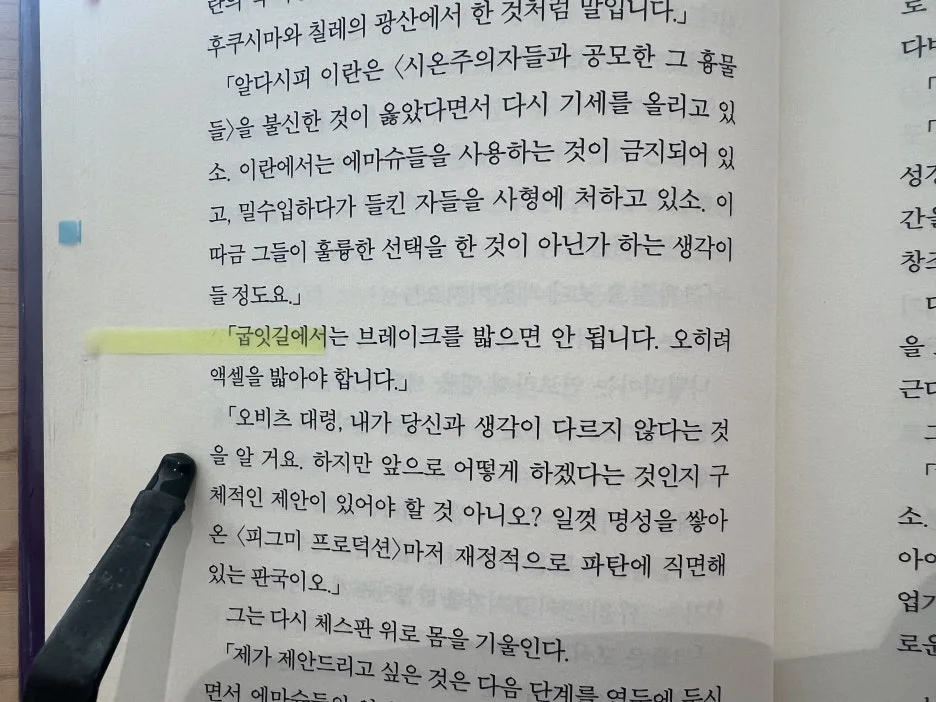 후쿠시마와 칠레의 광산에서 한 것처럼 말입니다.」
「알다시피 이란은 〈시온주의자들과 공모한 그 흉물
들〉을 불신한 것이 옳았다면서 다시 기세를 올리고 있
소. 이란에서는 에마슈들을 사용하는 것이 금지되어 있
고, 밀수입하다가 들킨 자들을 사형에 처하고 있소. 이
따금 그들이 훌륭한 선택을 한 것이 아닌가 하는 생각이
들 정도요.」
「굽잇길에서는 브레이크를 밟으면 안 됩니다. 오히려
액셀을 밟아야 합니다.」
「오비츠 대령, 내가 당신과 생각이 다르지 않다는 것
을 알 거요. 하지만 앞으로 어떻게 하겠다는 것인지 구
체적인 제안이 있어야 할 것 아니오? 일껏 명성을 쌓아
온 〈피그미 프로덕션〉마저 재정적으로 파탄에 직면해
있는 판국이오.」
그는 다시 체스판 위로 몸을 기울인다.
「제가 제안드리고 싶은 것은 다음 단계를 염두에 두시
면서 에마슈들의
로
성경
간을
창조
을
근대
소.
아이
업기
로운